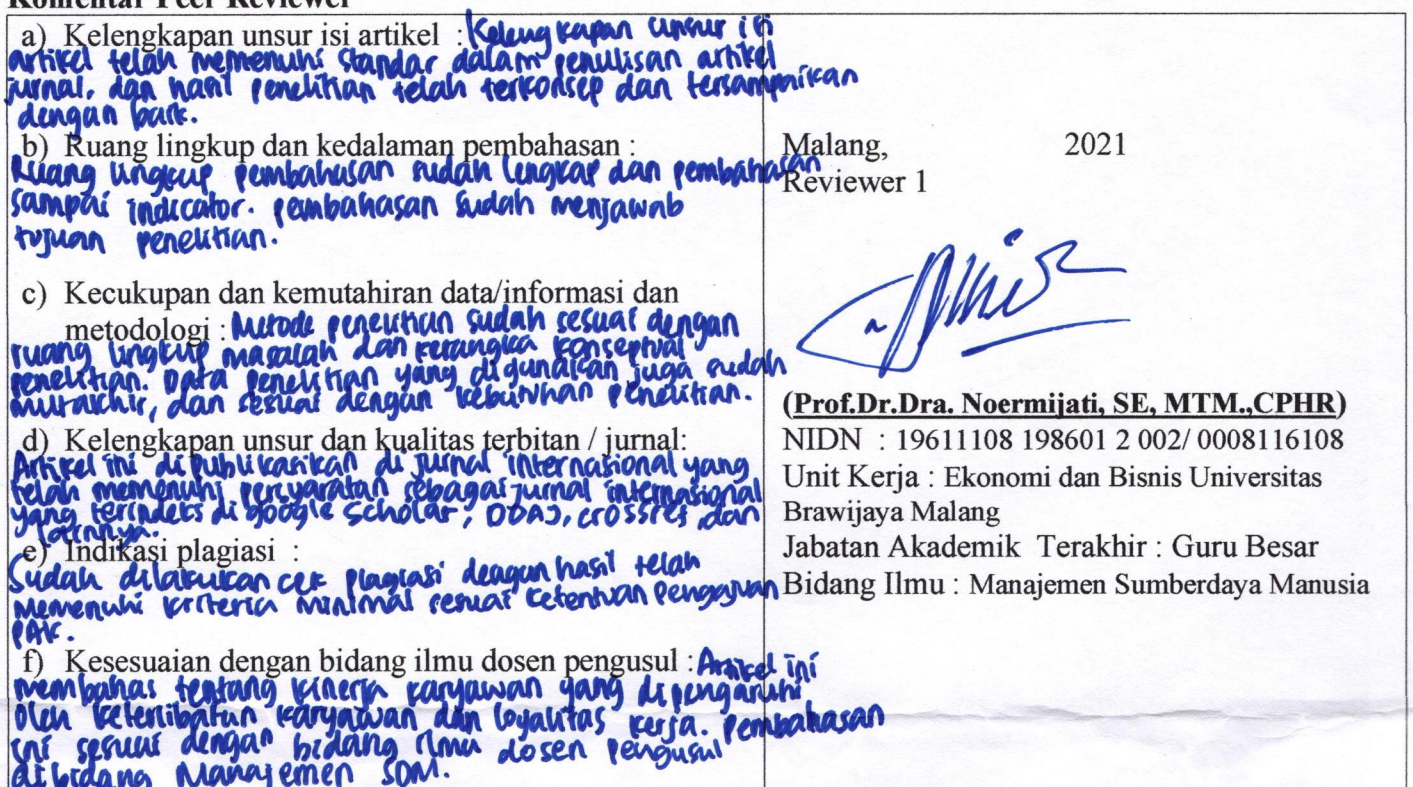 Komentar Peer Reviewer
a) Kelengkapan unsur isi artikel : Kelengkapan unsur isi
artikel telah memenuhi standar dalam penulisan artikel
jurnal, dan hasil penelitian telah terkonsep dan tersampaikan
dengan baik.
b) Ruang lingkup dan kedalaman pembahasan :
Ruang lingkup pembahasan sudah lengkap dan pembahasan
sampai indicator. pembahasan sudah menjawab
tujuan penelitian.
c) Kecukupan dan kemutahiran data/informasi dan
metodologi : Metode penelitian sudah sesuai dengan
ruang lingkup masalah dan kerangka konseptual
penelitian. Data penelitian yang digunakan juga sudah
mutakhir, dan sesuai dengan kebutuhan penelitian.
d) Kelengkapan unsur dan kualitas terbitan / jurnal:
Artikel ini dipublikasikan di jurnal internasional yang
telah memenuhi persyaratan sebagai jurnal internasional
yang terindeks di google scholar, DOAJ, crossref dan
lainnya.
e) Indikasi plagiasi :
Sudah dilakukan cek plagiasi dengan hasil telah
memenuhi kriteria minimal sesuai ketentuan pengajuan
PAK.
f) Kesesuaian dengan bidang ilmu dosen pengusul : Artikel ini
membahas tentang kinerja karyawan yang dipengaruhi
oleh keterlibatan karyawan dan loyalitas kerja. Pembahasan
ini sesuai dengan bidang ilmu dosen pengusul
dibidang Manajemen SDM.
Malang, 2021
Reviewer 1
(Prof.Dr.Dra. Noermijati, SE, MTM.,CPHR)
NIDN : 19611108 198601 2 002/ 0008116108
Unit Kerja : Ekonomi dan Bisnis Universitas
Brawijaya Malang
Jabatan Akademik Terakhir : Guru Besar
Bidang Ilmu : Manajemen Sumberdaya Manusia